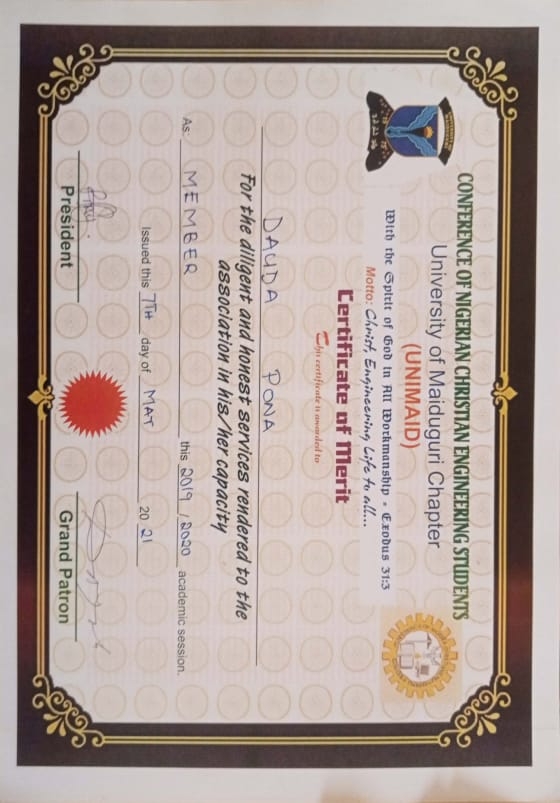 CONFERENCE OF NIGERIAN CHRISTIAN ENGINEERING STUDENTS
University of Maiduguri Chapter
(UNIMAID)
With the Spirit of God in All Workmanship - Exodus 31:3
Motto: Christ, Engineering Life to all...
Certificate of Merit
This certificate is awarded to
DAUDA PONA
For the diligent and honest services rendered to the
association in his/her capacity
As: MEMBER this 2019 / 2020 academic session.
Issued this 7TH day of MAY 20 21
President
Grand Patron